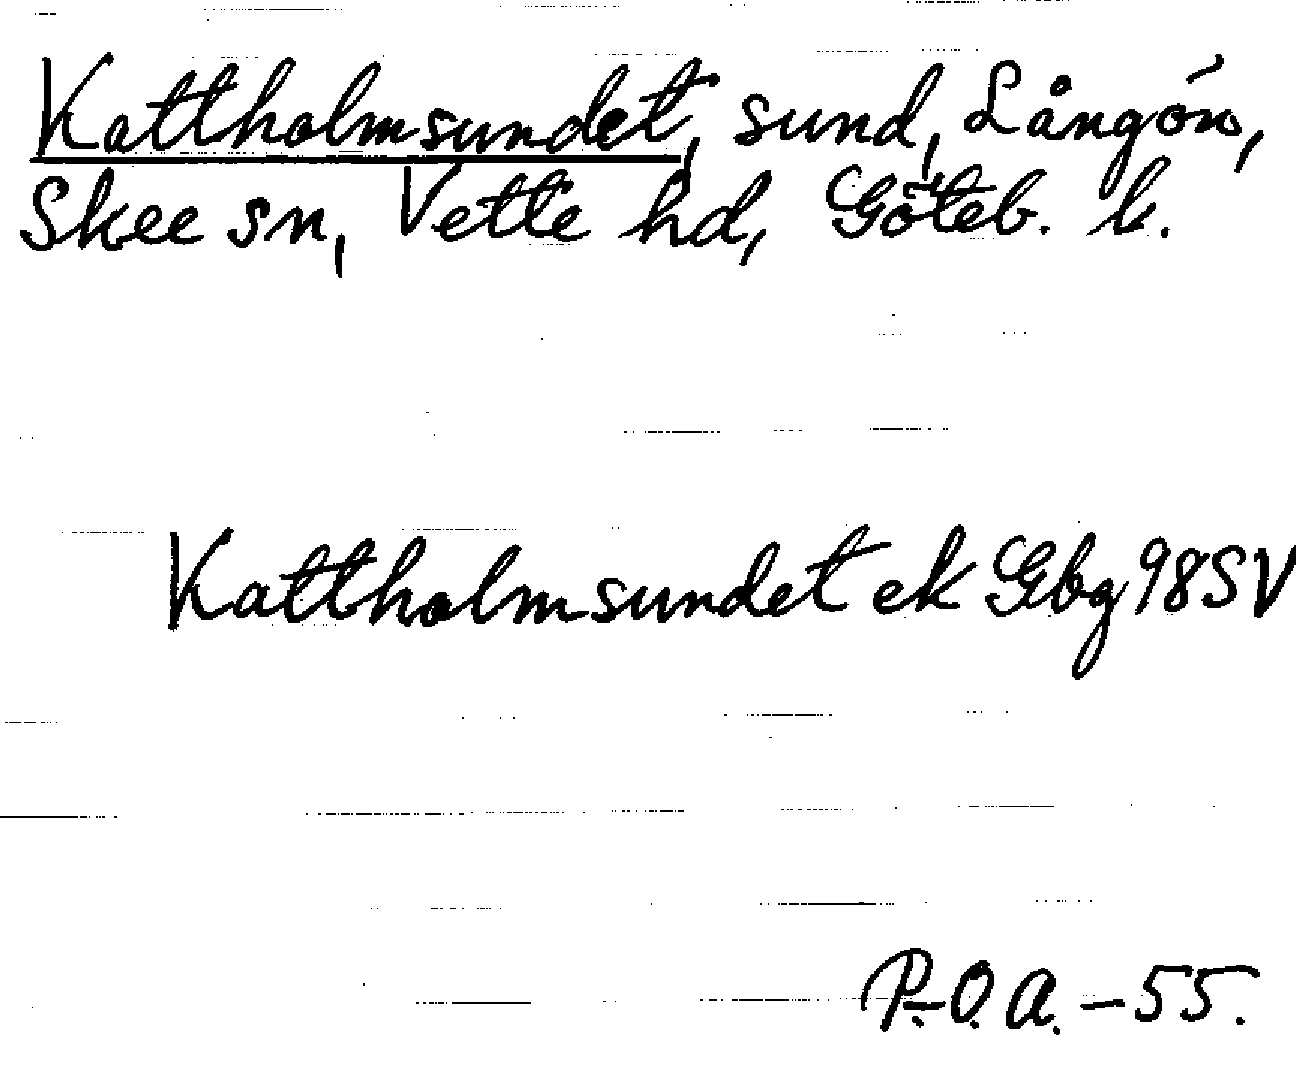 Kattholmsundet, sund, Långön,
Skee sn, Vette hd, Göteb. l.
Kattholmsundet ek Gbg 98SV
P.-O. A. - 55.